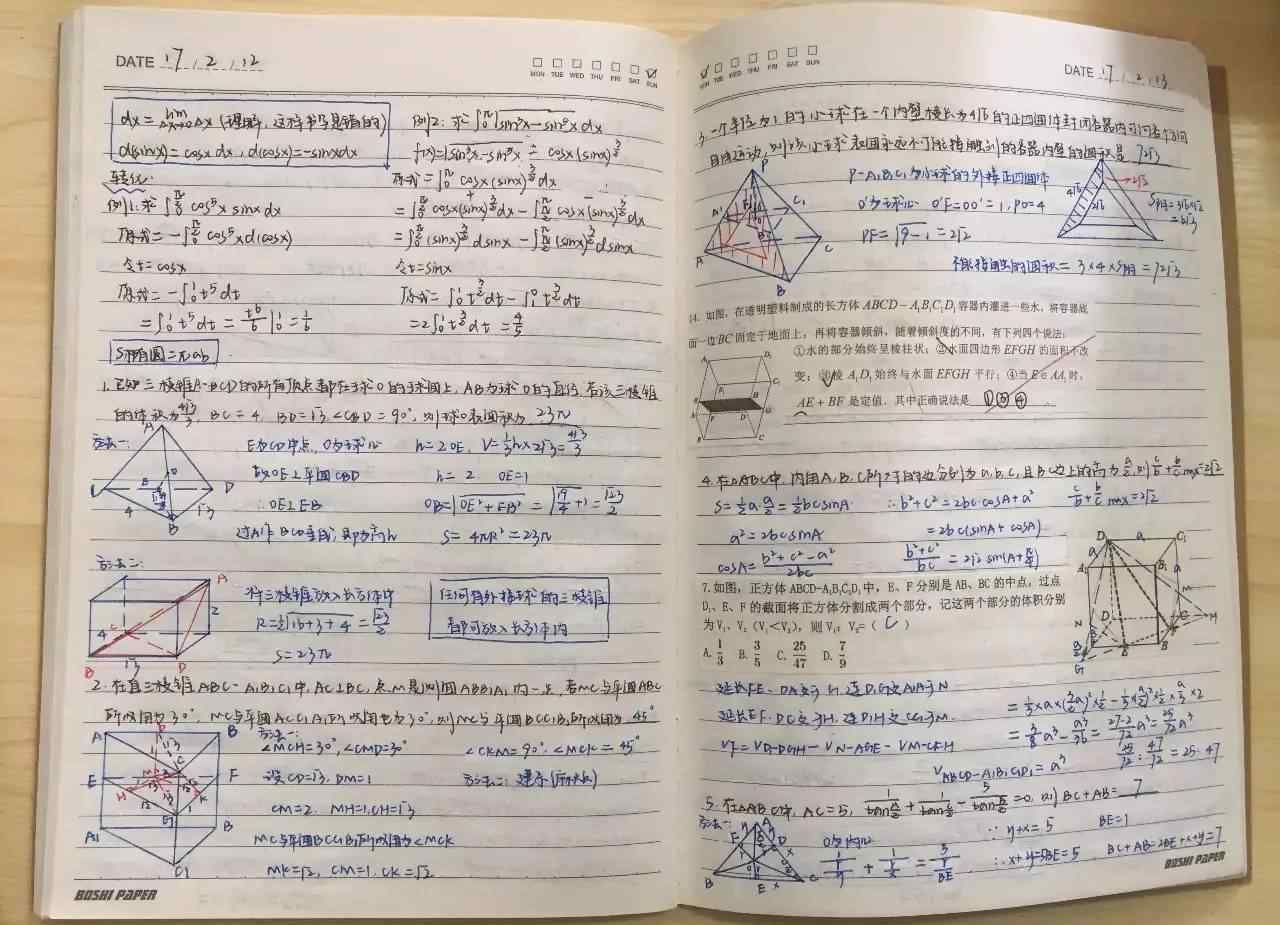 DATE 17.2.12
MON TUE WED THU FRI SAT SUN
dx = lim Δx→0 Δx (理解, 这样书写是错的)
d(sinx) = cosx dx, d(cosx) = -sinxdx
转化.
例1: 求 ∫₀^(π/2) cos⁵x sinx dx
原式 = -∫₀^(π/2) cos⁵x d(cosx)
令t=cosx
原式 = -∫₁⁰ t⁵dt
= ∫₀¹ t⁵dt = t⁶/6 |₀¹ = 1/6
S椭圆=πab
例2: 求 ∫₀^π √(sin³x-sin⁵x) dx
f(x)=√(sin³x-sin⁵x) = cosx(sinx)^(3/2)
原式 = ∫₀^π cosx(sinx)^(3/2)dx
= ∫₀^(π/2) cosx(sinx)^(3/2)dx - ∫_(π/2)^π cosx(sinx)^(3/2)dx
= ∫₀^(π/2) (sinx)^(3/2)dsinx - ∫_(π/2)^π (sinx)^(3/2)dsinx
令t=sinx
原式 = ∫₀¹ t^(3/2)dt - ∫₁⁰ t^(3/2)dt
= 2∫₀¹ t^(3/2)dt = 4/5
1. 已知三棱锥A-BCD的所有顶点都在球O的球面上, AB为球O的直径, 若该三棱锥
的体积为4√3/3, BC=4, BD=√3, ∠CBD=90°, 则球O表面积为 23π
方法一:
E为CD中点, O为球心
故OE⊥平面CBD
∴OE⊥EB
过A作BCD垂线, 即为高h
h=2OE, V=1/3h×2√3=4√3/3
h=2 OE=1
OB=√(OE²+EB²)=√(19/4+1)=√23/2
S=4πR²=23π
方法二:
将三棱锥放入长方体中
R=1/2√(16+3+4)=√23/2
S=23π
任何有外接球的三棱锥
都可放入长方体内
2. 在直三棱锥ABC-A₁B₁C₁中, AC⊥BC, 点M是侧面ABB₁A₁内一点, 若MC与平面ABC
所成角为30°, MC与平面ACC₁A₁所成角也为30°, 则MC与平面BCC₁B₁所成角为 45°
方法一:
∠MCH=30°, ∠CMD=30°
设CD=√3, DM=1
CM=2, MH=1, CH=√3
MC与平面BCC₁B₁所成角为∠MCK
MK=√2, CM=1, CK=√2
∠CKM=90°, ∠MCK=45°
方法二: 建系
BOSHI PAPER
MON TUE WED THU FRI SAT SUN
DATE 17.2.13
3. 一个半径为1的小球在一个内壁棱长为4√6的正四面体封闭容器内可向各个方向
自由运动, 则该小球表面永远不可能接触到的容器内壁的面积是 72√3
P-A₁B₁C₁为小球的外接正四面体
O'为球心 O'F=OO'=1, PO=4
PF=√(9-1)=2√2
不能接触的面积=3×4×S阴=72√3
14. 如图，在透明塑料制成的长方体 ABCD－A₁B₁C₁D₁ 容器内灌进一些水，将容器底
面一边BC固定于地面上，再将容器倾斜，随着倾斜度的不同，有下列四个说法：
①水的部分始终呈棱柱状；②水面四边形 EFGH 的面积不改
变；③棱 A₁D₁ 始终与水面 EFGH 平行；④当 E∈AA₁ 时，
AE＋BF 是定值．其中正确说法是 ①③④
4. 在△ABC中, 内角A, B, C所对的边分别为a, b, c, 且BC边上的高为a/2, 则c/b+b/c max=2√2
S=1/2a·a/2=1/2bcsinA
a²=2bcsinA
cosA=(b²+c²-a²)/2bc
∴b²+c²=2bccosA+a²
=2bc(sinA+cosA)
(b²+c²)/bc=2√2sin(A+π/4)
c/b+b/c max=2√2
7. 如图，正方体 ABCD-A₁B₁C₁D₁ 中，E、F 分别是 AB、BC 的中点，过点
D₁、E、F 的截面将正方体分割成两个部分，记这两个部分的体积分别
为 V₁、V₂（V₁＜V₂），则 V₁：V₂=（ C ）
A. 1/3 B. 3/5 C. 25/47 D. 7/9
延长EF, DC交于H, 连D₁H交CC₁于M.
= 1/3×a×(3/2a)²×1/2-1/3×(a/2)²×1/2×a/3×2
= 3/8a³-a³/36=(27-2)/72a³=25/72a³
V_ABCD-A₁B₁C₁D₁=a³
25/72:47/72=25:47
5. 在△ABC中, AC=5, 1/tan(A/2)+1/tan(C/2)-5/tan(B/2)=0, 则BC+AB= 7
方法一:
O为内心
∵y+x=5 BE=1
∴x+y=5BE=5 BC+AB=2BE+x+y=7
BOSHI PAPER